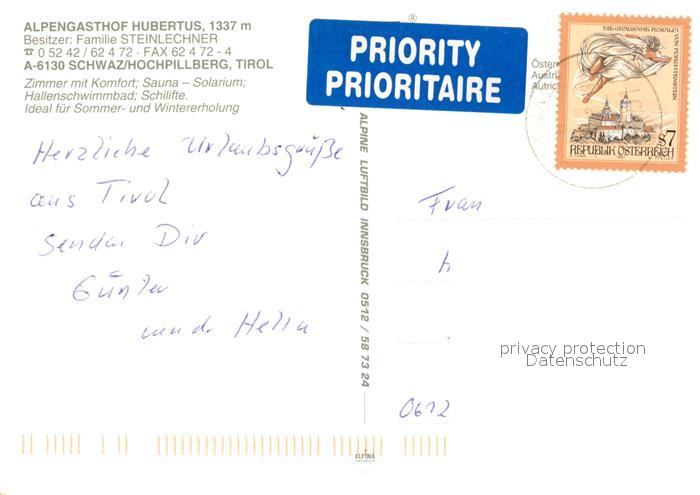 ALPENGASTHOF HUBERTUS, 1337 m
Besitzer: Familie STEINLECHNER
☎ 0 52 42 / 62 4 72 · FAX 62 4 72 - 4
A-6130 SCHWAZ/HOCHPILLBERG, TIROL
Zimmer mit Komfort; Sauna – Solarium;
Hallenschwimmbad; Schilifte.
Ideal für Sommer- und Wintererholung
PRIORITY
PRIORITAIRE
®
Öster
Austria
Autric
DIE GRAUSAME ROSALIA
VON FORCHTENSTEIN
s7
REPUBLIK ÖSTERREICH
Herzliche Urlaubsgrüße
aus Tirol
senden Dir
Günter
und Hella
ALPINE LUFTBILD INNSBRUCK 0512 / 58 73 24
Frau
h
0612
privacy protection
Datenschutz
ALPINA